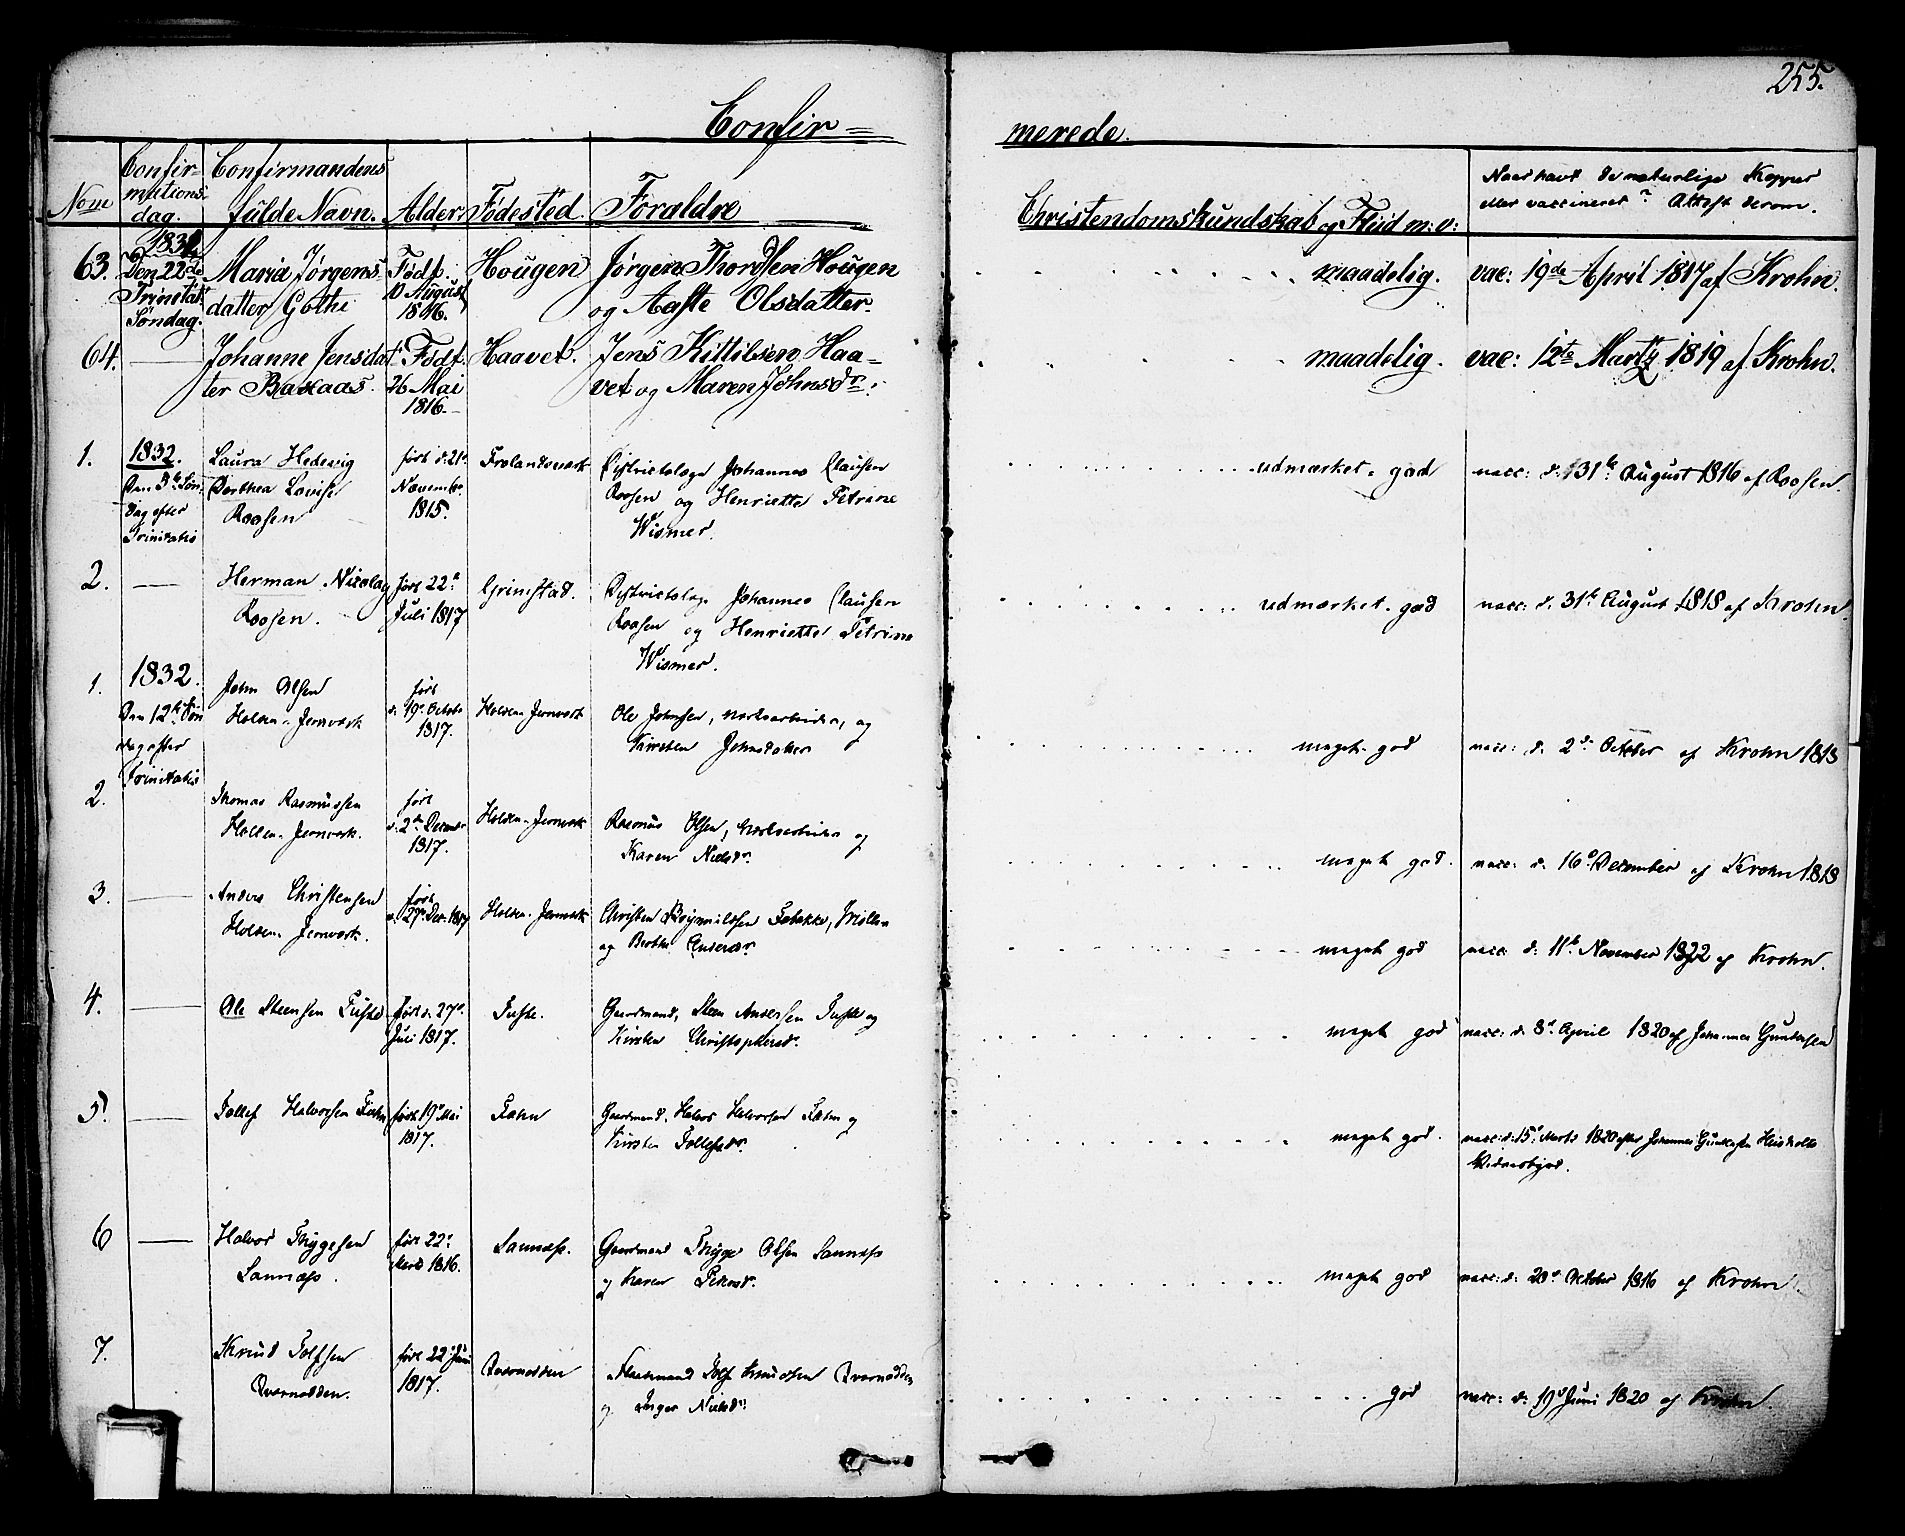 255.
Confir=
merede.
Nom
Confir-
mations
dag.
Confirmandens
fulde Navn.
Alder.
Fødested.
Foraldre
Christendomskundskab og Fliid m: v:
Naar havt de naturlige Kopper
eller vaccineret? Attest derom.
63.
Den 22de
Trinitat
Søndag.
Maria Jørgens
datter Gothe
Født.
10 August
1816.
Hougen
Jørgen Thordsen Hougen
og Aaste Olsdatter.
maadelig.
vac: 19de April 1817 af Krohn.
64.
Johanne Jensdat
ter Baxaas.
Født.
26 Mai
1816.
Haavet.
Jens Kittilsen Haa-
vet og Maren Johnsdr:
maadelig.
vac: 12te Martz 1819 af Krohn.
1.
1832.
Den 3de Søn
dag efter
Trinitatis
Laura Hedevig
Dorthea Lovise
Roosen
født d. 21de
Novembr.
1815.
Frolandsværk
Districtslæge Johannes Clausen
Roosen og Henriette Petrine
Wismer.
udmærket god
vacc: d. 31te August 1816 af Roosen.
2.
Herman Nicolay
Roosen.
født 22de
Juli 1817
Grimstad.
Districtslæge Johannes Clausen
Roosen og Henriette Petrine
Wismer.
udmærket god
vacc: d. 31te August 1818 af Krohn.
1.
1832.
Den 12te Søn
dag efter
Trinitatis
John Olsen
Holden Jernværk
født
d. 19de Octobr
1817.
Holden Jernværk
Ole Johnsen, værksarbeider, og
Kirsten Johnsdatter
meget god
vacc: d. 2de October af Krohn 1818
2.
Thomas Rasmussen
Holden Jernværk.
født
d. 2den Decembr
1817.
Holden Jernværk
Rasmus Olsen, værksarbeider og
Karen Nielsdr.
meget god.
vacc: d. 16de December af Krohn 1818
3.
Anders Christensen
Holden Jernværk.
født
d. 27de Dec. 1817
Holden Jernværk
Christen
og Berthe Andersdr.
meget god
vacc: d. 11te November 1822 af Krohn.
4.
Ole Steensen Tufte
født d. 27de
Juli 1817.
Tufte.
Gaardmand, Steen Andersen Tufte og
Kirsten Christophersdr.
meget god
vacc: d. 8de April 1820 af Johannes Gundersen
5.
Tollef Halvorsen Fæhn
født 19de Mai
1817.
Fæhn
Gaardmand, Halvor Halvorsen Fæhn og
Kirsten Tollefsdr.
meget god.
vacc: d: 15de Marts 1820 efter Johannes Gundersen
6
Halvor Thygesen
Sannæss.
født 22de
1816.
Sannæss.
Gaardmand Thyge Olsen Sannæss
og Karen
meget god
vacc: d: 20de October 1816 af Krohn.
7.
Knud Tolfsen
Qvernodden.
født 22 Juni
1817.
Qvernodden
Tolf Knudsen Qvernodden
og Inger Nielsdr.
god
vacc: d. 19de Juni 1820 af Krohn.